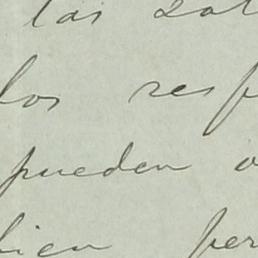 las
los res
pueden
bien per